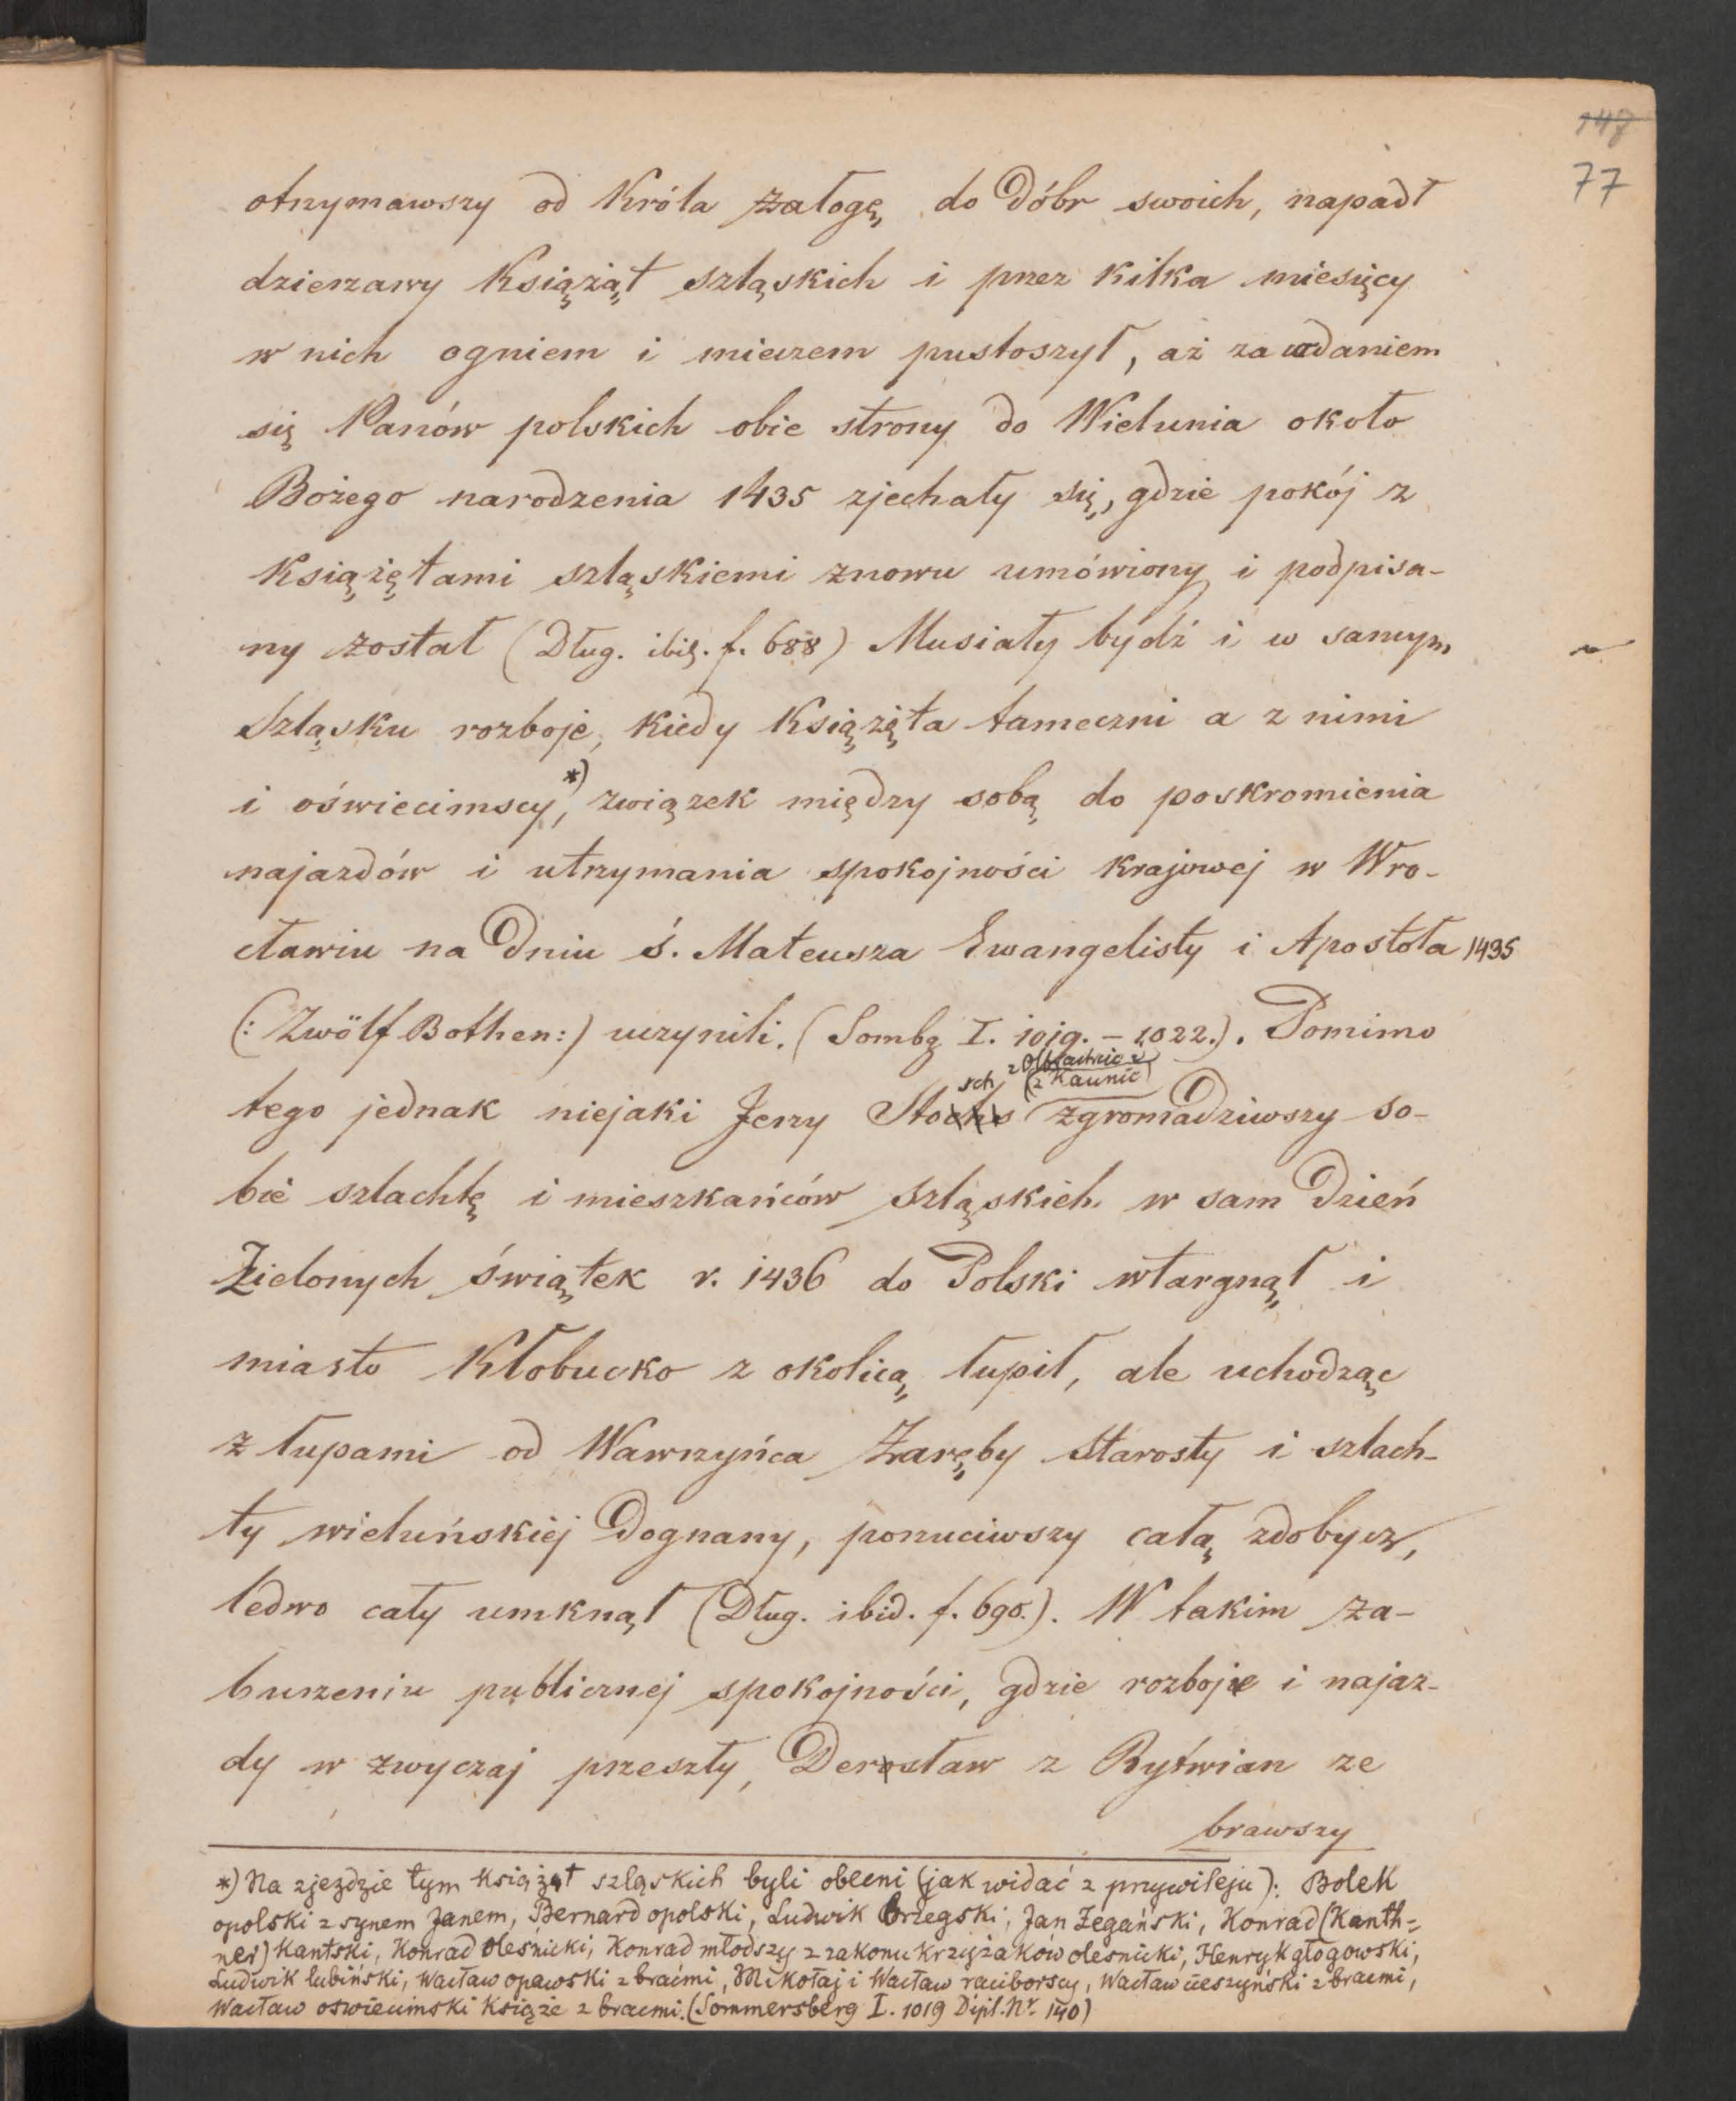 147
77
otrzymawszy od Króla załogę do dóbr swoich, napadł
dzierzawy Książąt szląskich i przez kilka miesięcy
w nich ogniem i mieczem pustoszył, aż za udaniem
się Panów polskich obie strony do Wielunia około
Bożego narodzenia 1435 zjechały się, gdzie pokój z
Książętami szląskiemi znowu umówiony i podpisa-
ny został (Dług. ibid. f. 688) Musiały bydź i w samym
Szląsku rozboje, kiedy Książęta tameczni a z nimi
i oświecimscy,*) związek między sobą do poskromienia
najazdów i utrzymania spokojności krajowej w Wro-
cławiu na dniu ś. Mateusza Ewangelisty i Apostoła 1435
(: Zwölf Bothen:) uczynili. (Sombg I. 1019. – 1022.). Pomimo
(z Kaunic)
sch
tego jednak niejaki Jerzy Stochs zgromadziwszy so-
bie szlachtę i mieszkańców szląskich w sam dzień
Zielonych świątek r. 1436 do Polski wtargnął i
miasto Kłobucko z okolicą łupił, ale uchodząc
z łupami od Wawrzyńca Zaręby Starosty i szlach-
ty wieluńskiej dognany, porzuciwszy całą zdobycz,
ledwo cały umknął (Dług. ibid. f. 690.). W takim za-
burzeniu publicznej spokojności, gdzie rozboje i najaz-
dy w zwyczaj przeszły, Derosław z Rytwian ze
brawszy
*) Na zjezdzie tym książąt szląskich byli obecni (jak widać z przywileju): Bolek
opolski z synem Janem, Bernard opolski, Ludwik brzegski, Jan Żegański, Konrad (Kanth=
ner) Kantski, Konrad Olesnicki, Konrad młodszy z zakonu krzyżaków olesnicki, Henryk głogowski,
Ludwik lubiński, Wacław opawski z braćmi, Mikołaj i Wacław raciborscy, Wacław cieszyński z bracmi,
Wacław oswiecimski Książe z bracmi. (Sommersberg I. 1019 Dipl. Nr. 140)